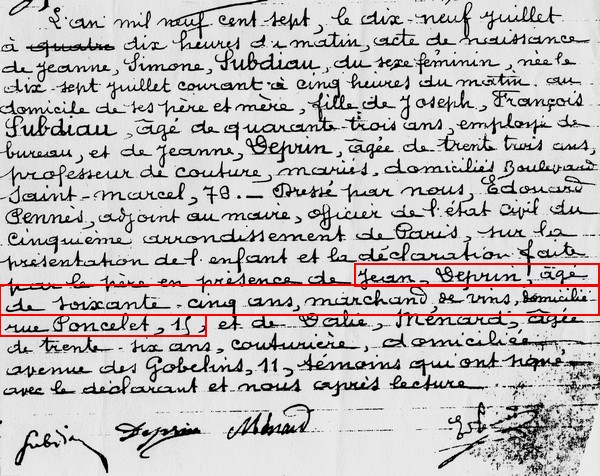 L'an mil neuf cent sept, le dix-neuf juillet
à quatre dix heures du matin, acte de naissance
de Jeanne, Simone, Subdiau, du sexe féminin, née le
dix sept juillet courant à cinq heures du matin au
domicile de ses père et mère, fille de Joseph, François
Subdiau, âgé de quarante trois ans, employé de
bureau, et de Jeanne, Deprin, âgée de trente trois ans,
professeur de couture, mariés, domiciliés Boulevard
Saint-marcel, 78. — Dressé par nous, Edouard
Pennes, adjoint au maire, officier de l'état civil du
cinquième arrondissement de Paris, sur la
présentation de l'enfant et la déclaration faite
par le père en présence de Jean, Deprin, âgé
de soixante-cinq ans, marchand, de vins, domicilié
rue Poncelet, 15, et de Valie, Ménard, âgée
de trente-six ans, couturière, domiciliée,
avenue des Gobelins, 11, témoins qui ont signé
avec le déclarant et nous après lecture
Subdiau Deprin Ménard